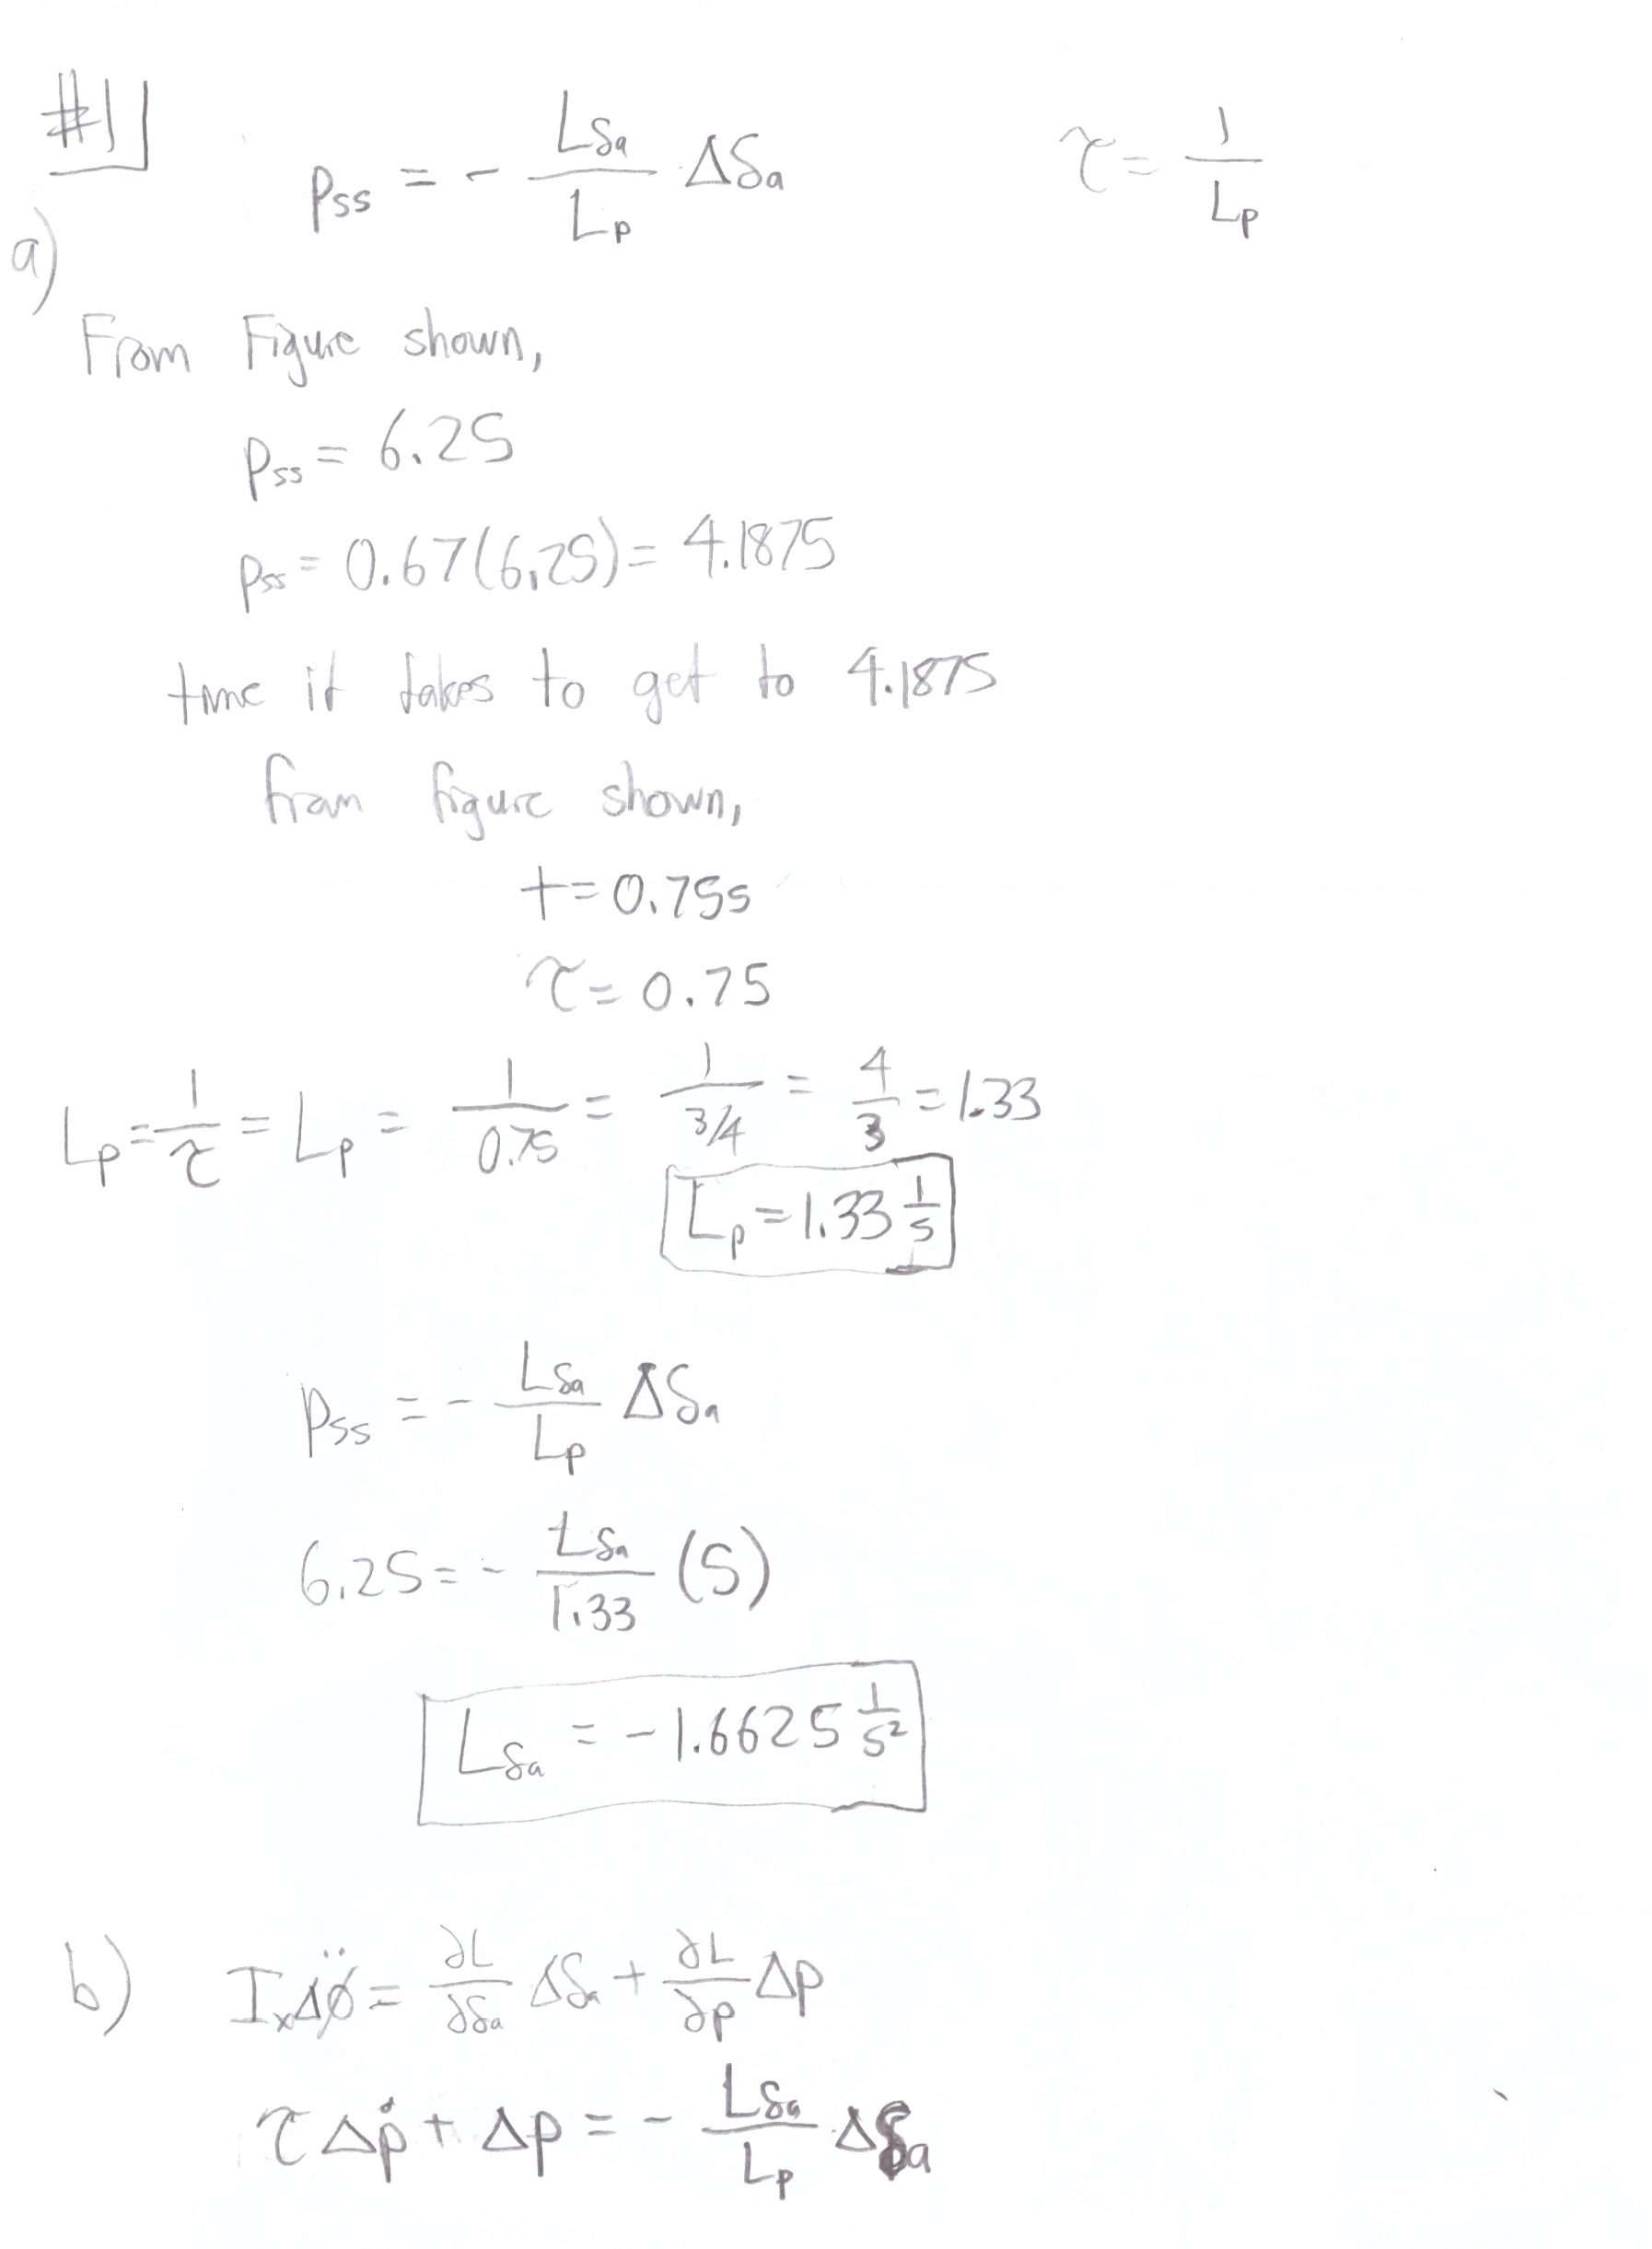 #1
p_ss = - L_δa / L_p Δδ_a    τ = 1 / L_p
a)
From Figure shown,
p_ss = 6.25
p_ss = 0.67(6.25) = 4.1875
time it takes to get to 4.1875
from figure shown,
t = 0.75s
τ = 0.75
L_p = 1/τ = L_p = 1/0.75 = 1/(3/4) = 4/3 = 1.33
L_p = 1.33 1/s
p_ss = - L_δa / L_p Δδ_a
6.25 = - L_δa / 1.33 (5)
L_δa = -1.6625 1/s²
b) I_x Δφ̈ = ∂L/∂δ_a Δδ_a + ∂L/∂p Δp
τ Δṗ + Δp = - L_δa / L_p Δδ_a